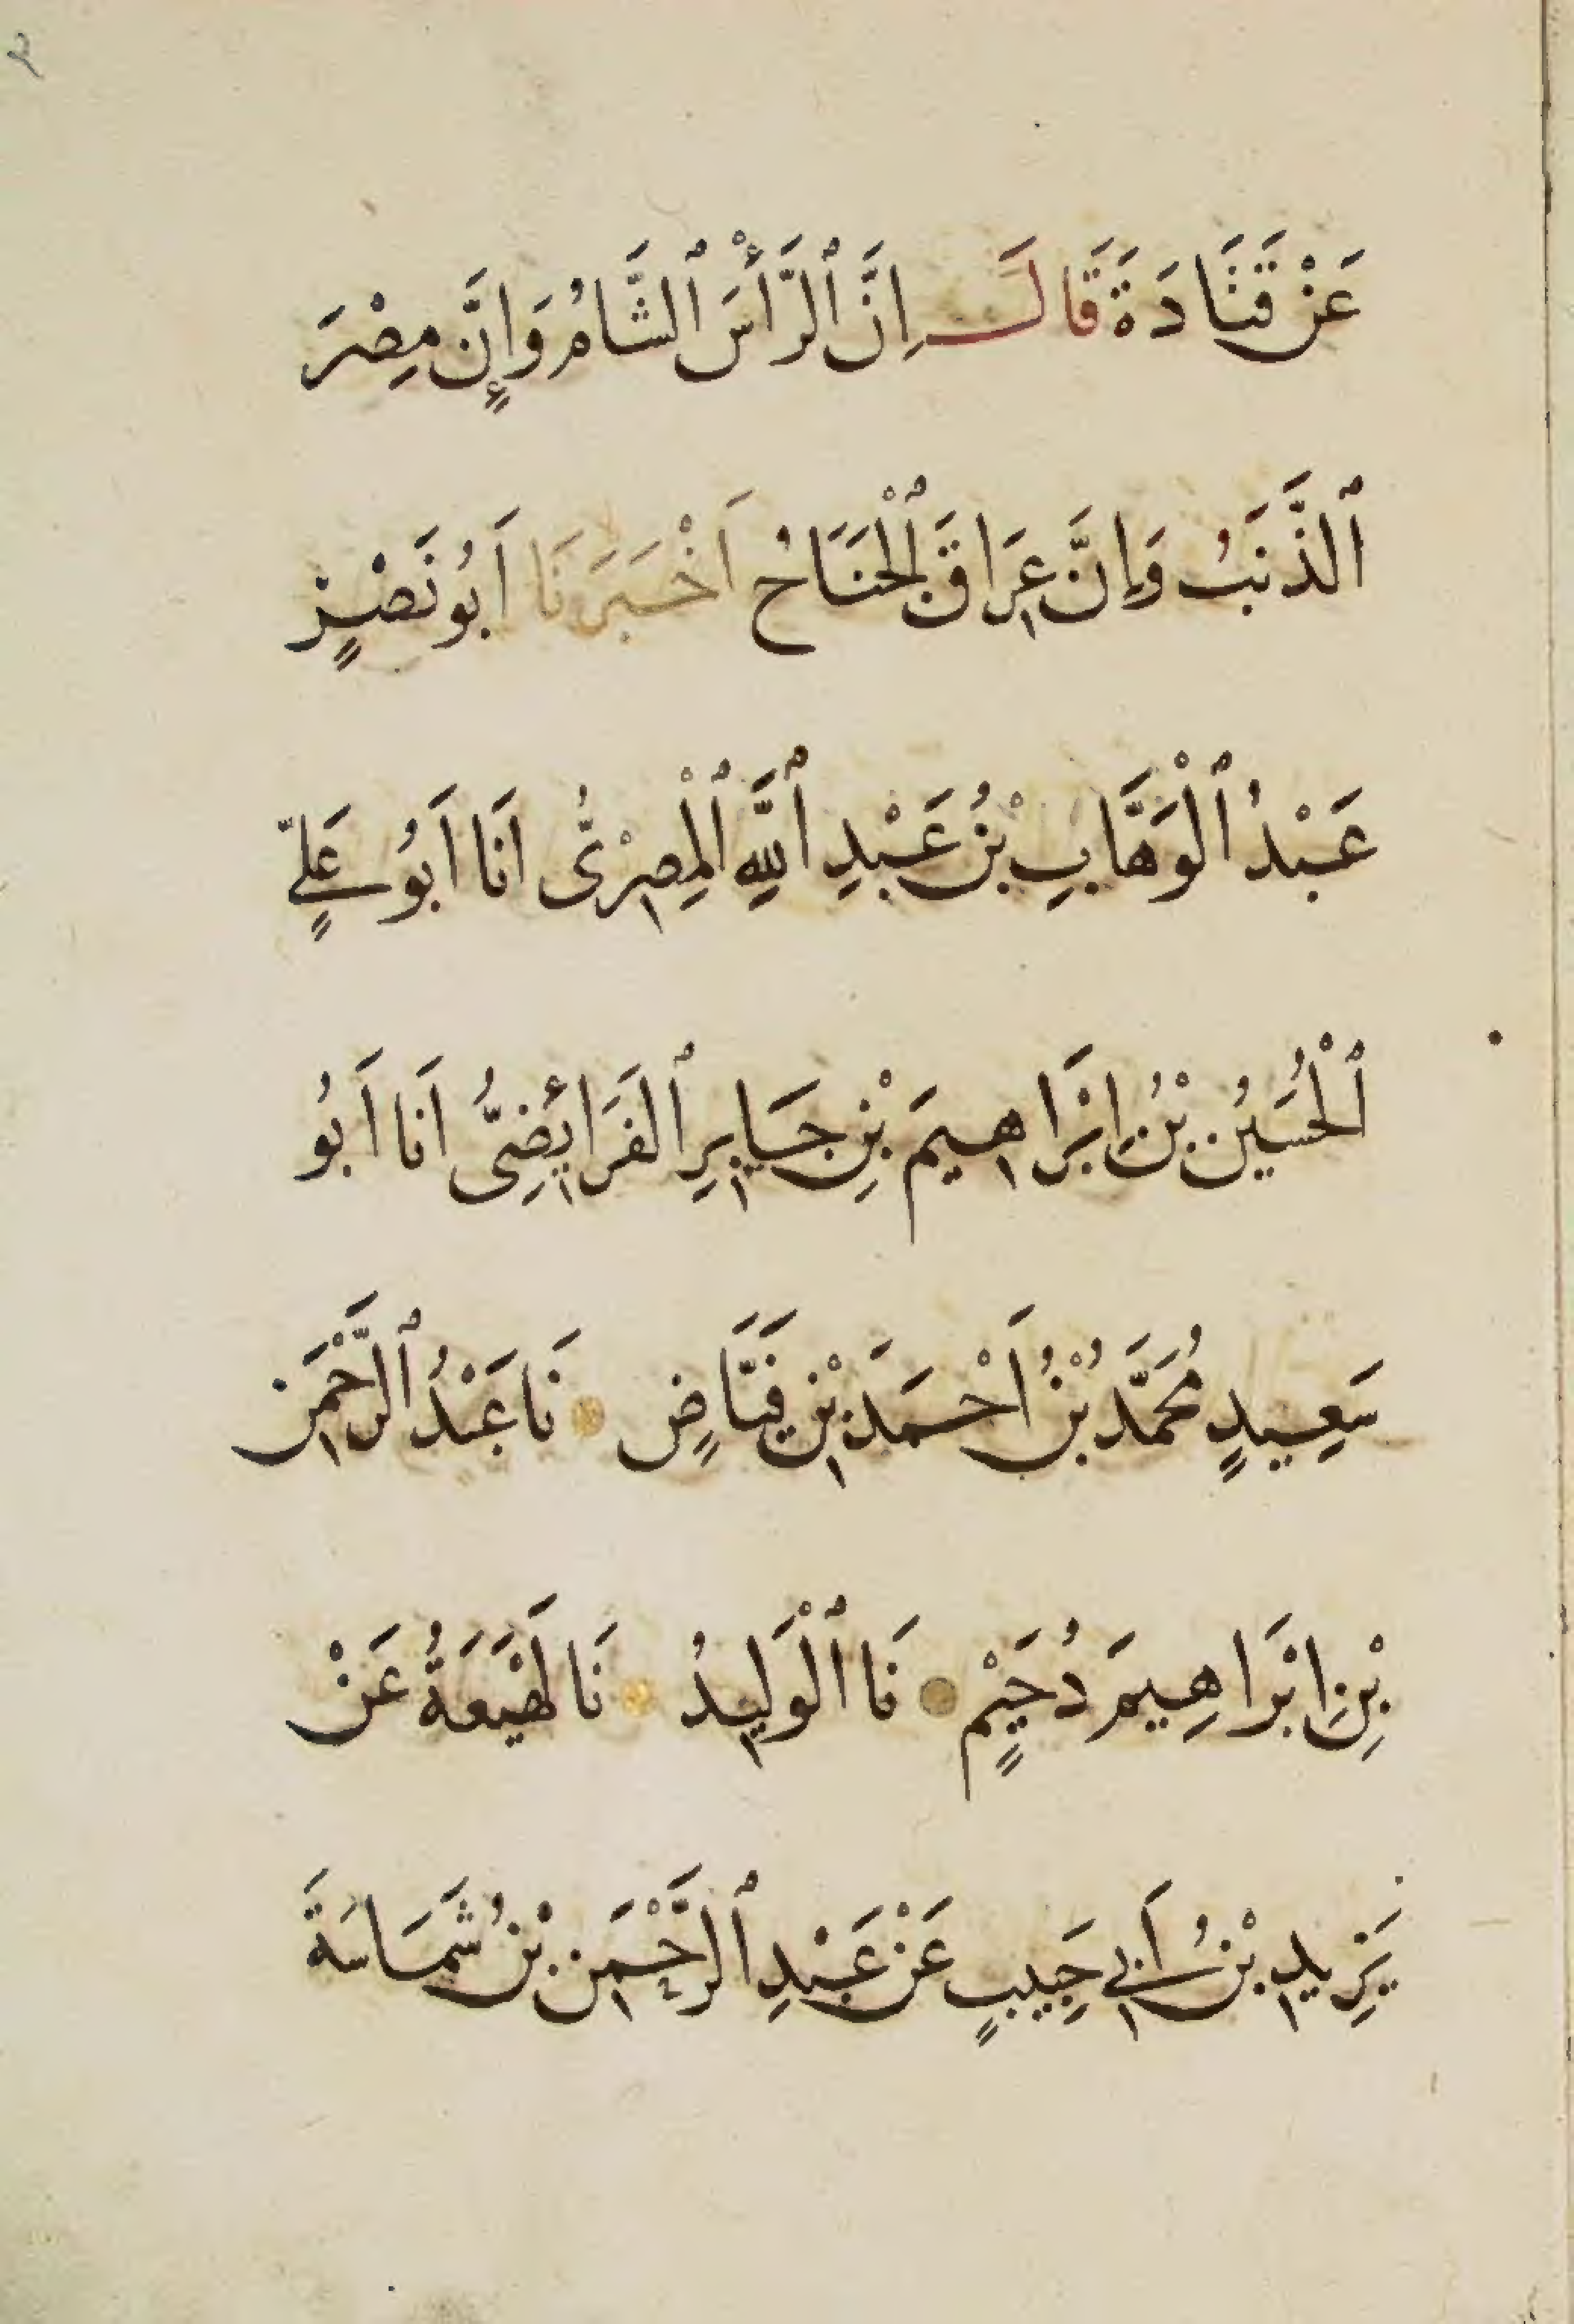 ٢
عَنْ قَتَادَةَ قَالَ اِنَّ ٱلرَّأْسَ ٱلشَّامُ وَإِنَّ مِصْرَ
ٱلذَّنَبُ وَإِنَّ عِرَاقَ ٱلْجَنَاحُ اَخْبَرَنَا اَبُو نَصْرٍ
عَبْدُ ٱلْوَهَّابِ بْنُ عَبْدِ ٱللَّهِ ٱلْمِصْرِىُّ اَنَا اَبُو عَلِىٍّ
ٱلْحُسَيْنُ بْنُ اِبْرَاهِيمَ بْنِ جَابِرِ ٱلفَرَائِضِىُّ اَنَا اَبُو
سَعِيدٍ مُحَمَّدُ بْنُ اَحْمَدَ بْنِ فَيَّاضٍ نَا عَبْدُ ٱلرَّحْمَنِ
بْنِ اِبْرَاهِيمَ دُحَيْمٍ نَا ٱلْوَلِيدُ نَا لَهْيَعَةُ عَنْ
يَزِيدِ بْنُ اَبِي حَبِيبٍ عَنْ عَبْدِ ٱلرَّحْمَنِ بْنُ شَمَاسَةَ